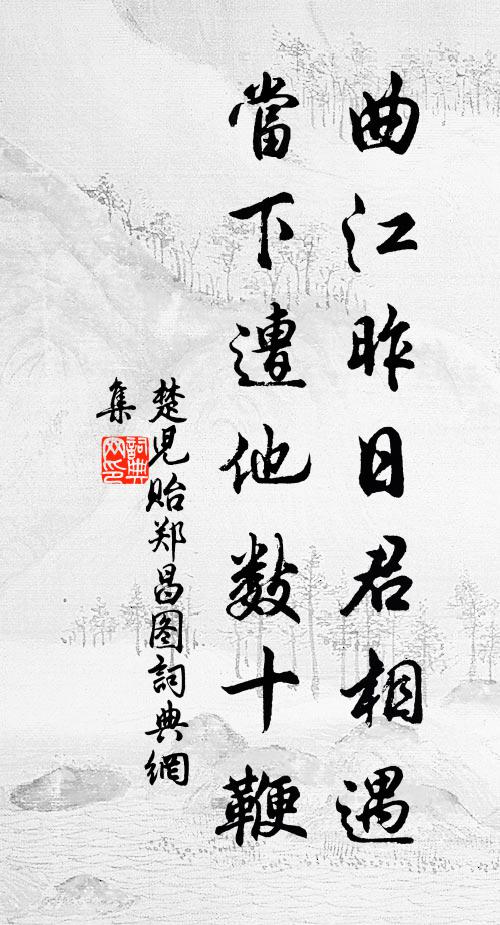 曲江昨日君相遇
當下遭他數十鞭
楚児贻郑昌图詞典網
集
詞典
网印